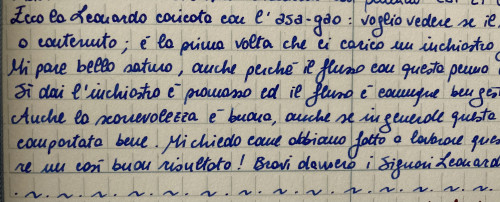 Ecco la Leonardo caricata con l'asa-gao: voglio vedere se il
o contenuto; è la prima volta che ci carico un inchiostro
Mi pare bello saturo, anche perché il flusso con questa penna
Sì dai l'inchiostro è promosso ed il flusso è comunque ben ges
Anche la scorrevolezza è buona, anche se in generale questa
comportata bene. Mi chiedo come abbiano fatto a lavorare ques
re un così buon risultato! Bravi davvero i Signori Leonard